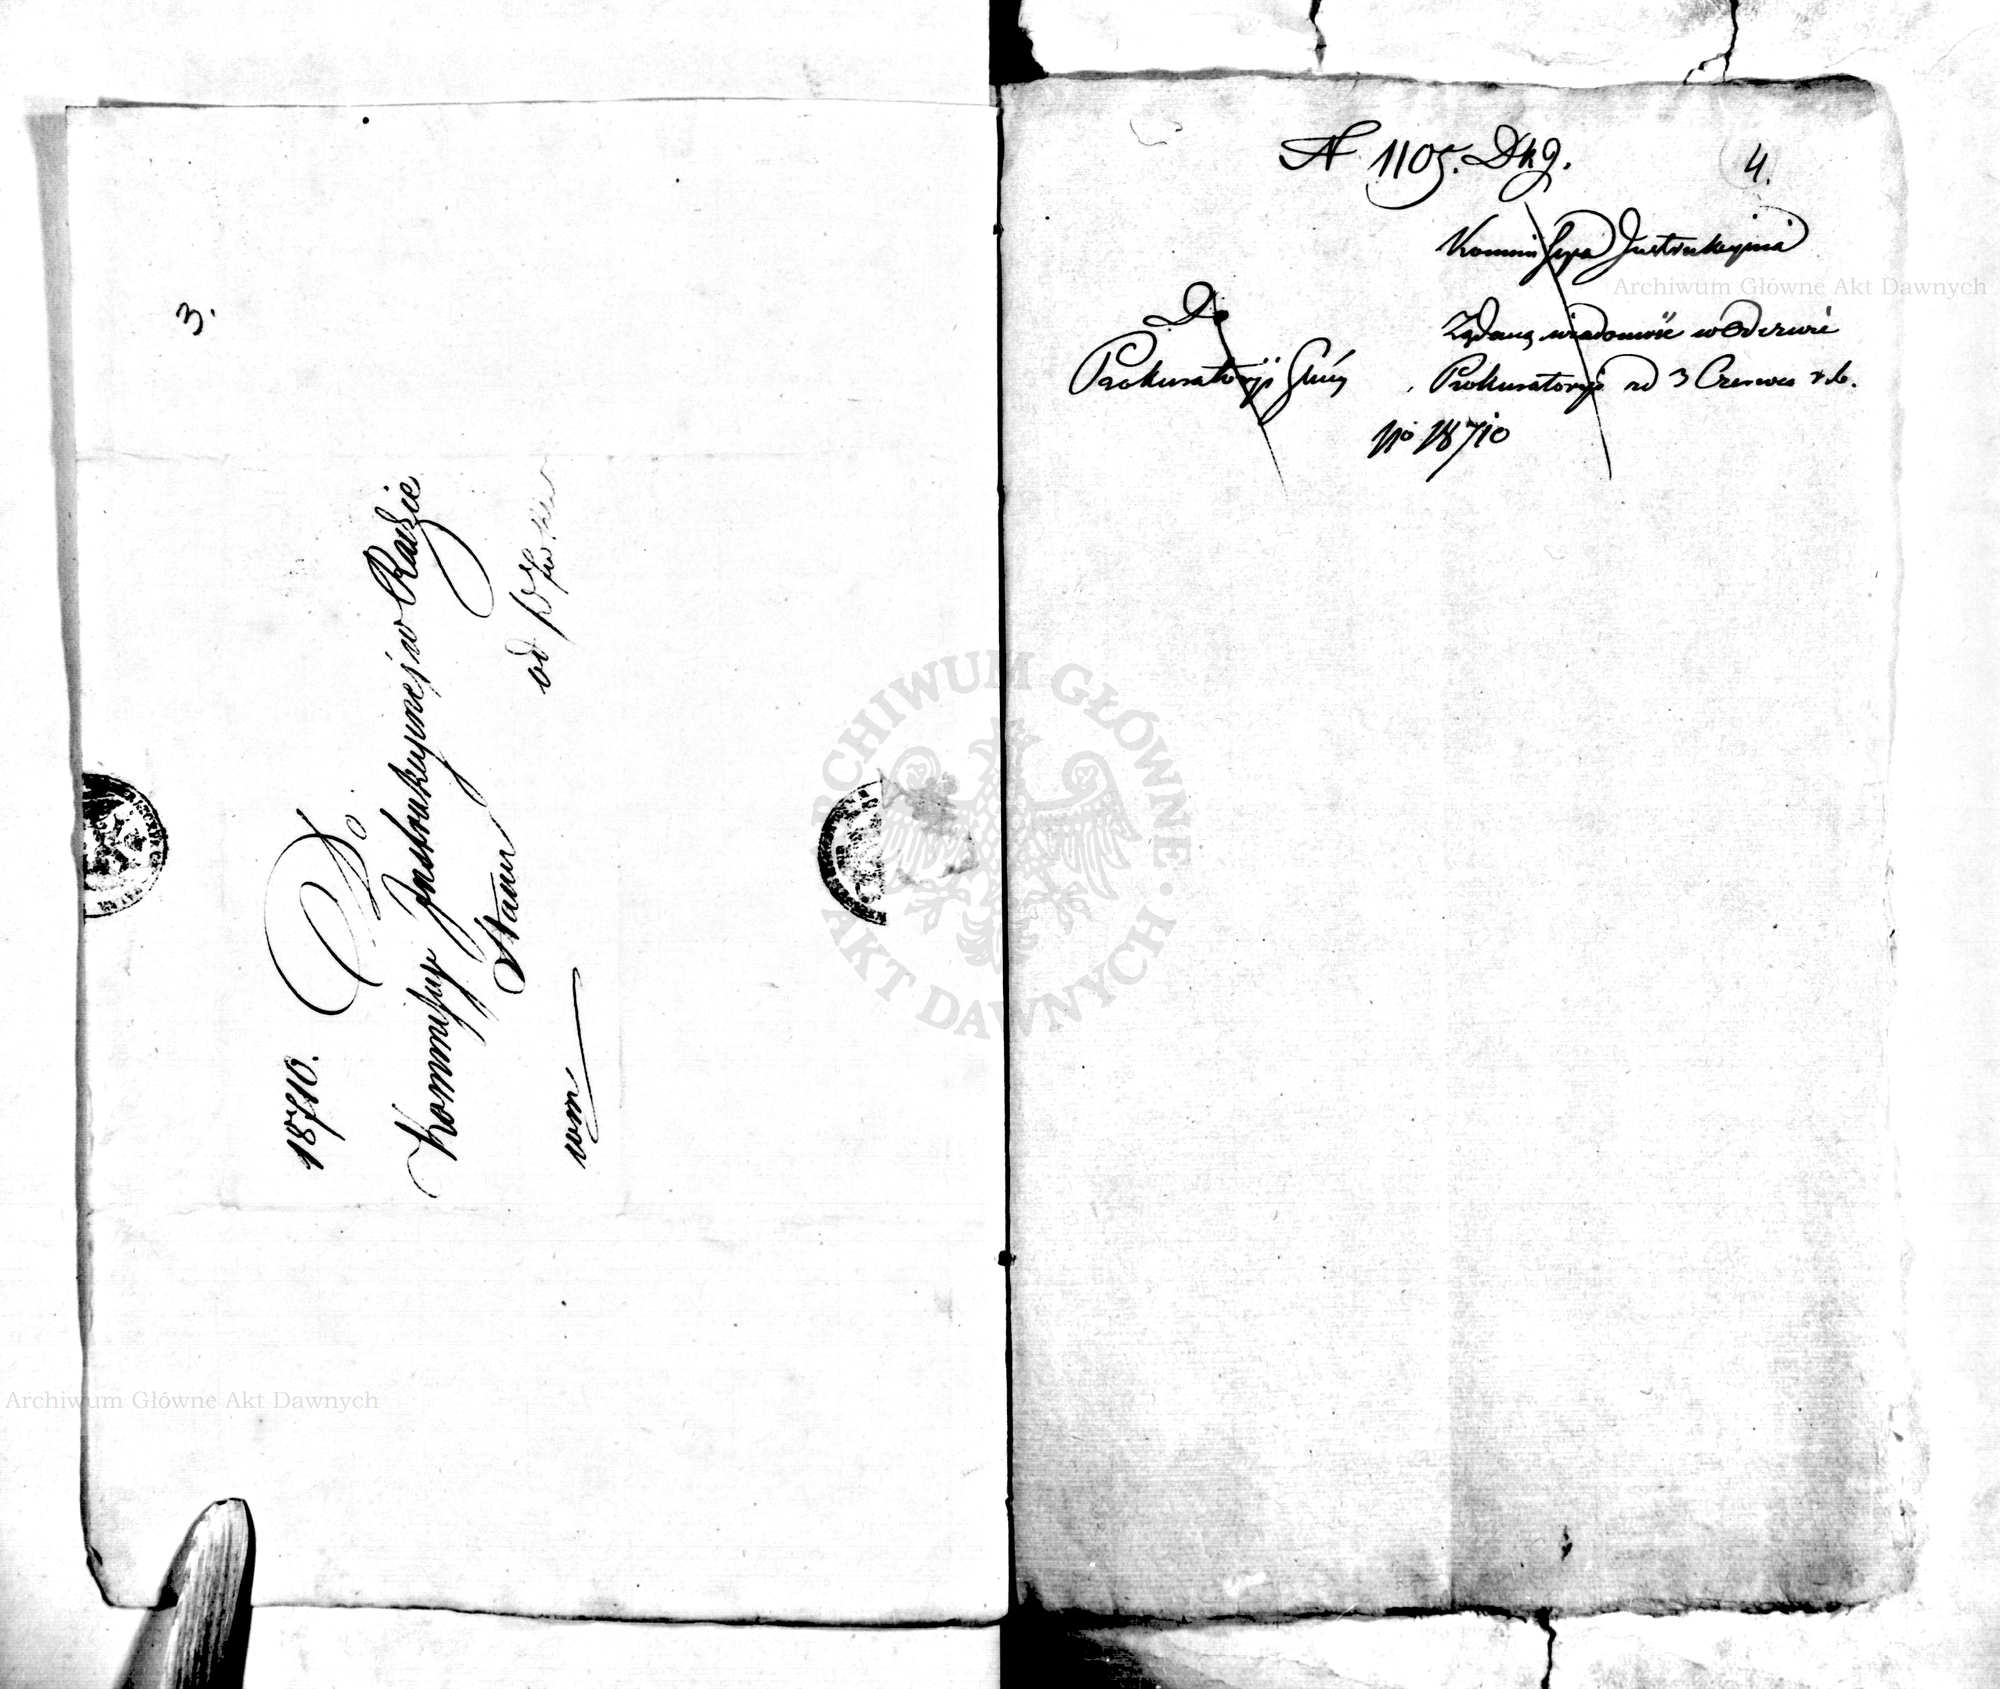 3.
18710.
Do
Kommissyi Instrukcyinej w Radzie
Stanu
od
wm
N 1105. Dkg.
4.
Kommissya Instrukcyina
Do
Prokuratoryi
Żądaną wiadomość w Odezwie
Prokuratoryi z d 3 Czerwca r. b.
No 18710
Archiwum Główne Akt Dawnych
ARCHIWUM GŁÓWNE AKT DAWNYCH
Archiwum Główne Akt Dawnych